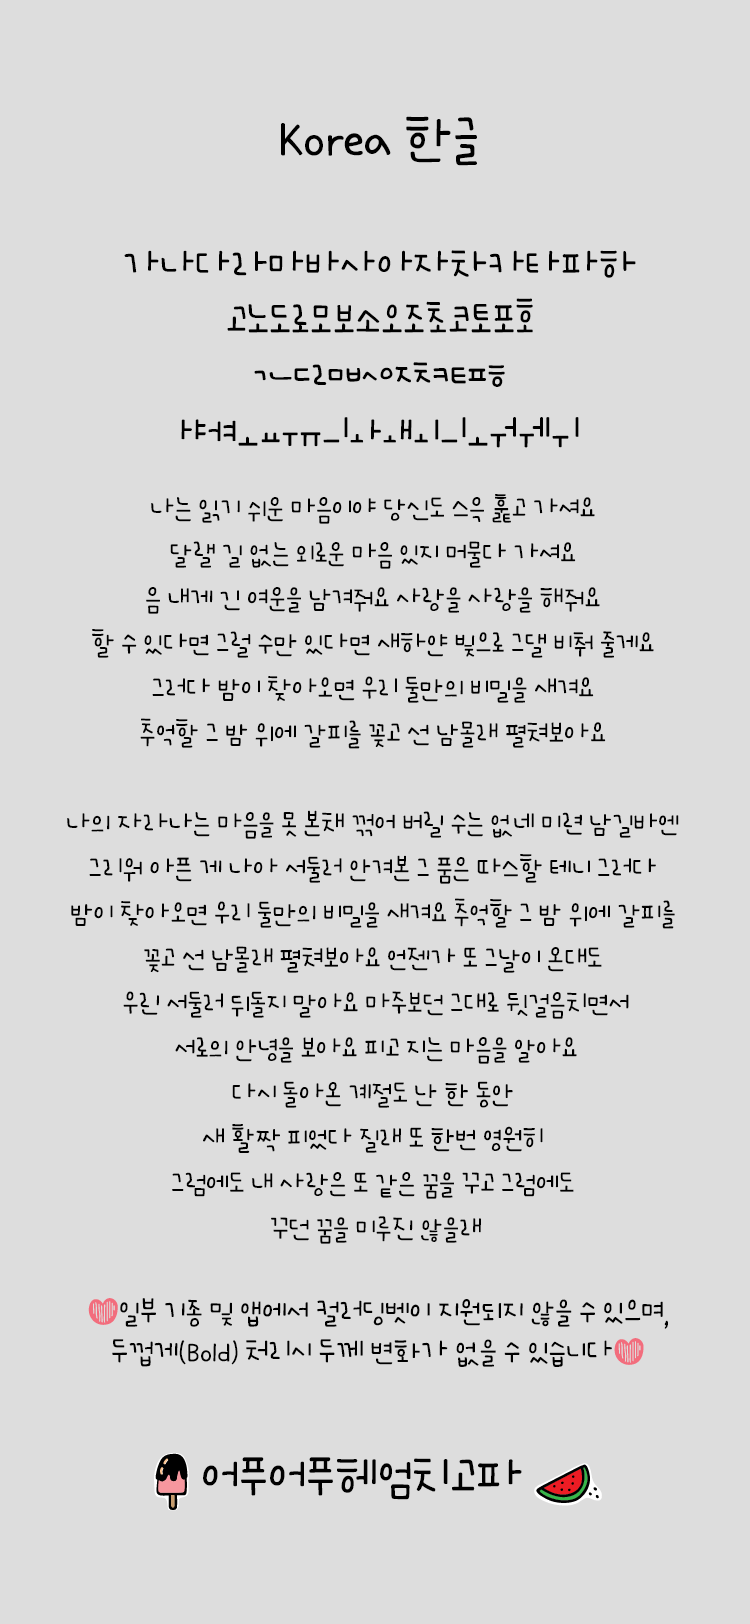 Korea 한글
가나다라마바사아자차카타파하
고노도로모보소오조초코토포호
ㄱㄴㄷㄹㅁㅂㅅㅇㅈㅊㅋㅌㅍㅎ
ㅑㅑㅕㅕㅗㅛㅜㅠㅡㅣㅘㅙㅚㅡㅣㅗㅝㅞㅟ
나는 읽기 쉬운 마음이야 당신도 스윽 훑고 가셔요
달랠 길 없는 외로운 마음 있지 머물다 가셔요
음 내게 긴 여운을 남겨줘요 사랑을 사랑을 해줘요
할 수 있다면 그럴 수만 있다면 새하얀 빛으로 그댈 비춰 줄게요
그러다 밤이 찾아오면 우리 둘만의 비밀을 새겨요
추억할 그 밤 위에 갈피를 꽂고 선 남몰래 펼쳐보아요
나의 자라나는 마음을 못 본채 꺾어 버릴 수는 없네 미련 남길바엔
그리워 아픈 게 나아 서둘러 안겨본 그 품은 따스할 테니 그러다
밤이 찾아오면 우리 둘만의 비밀을 새겨요 추억할 그 밤 위에 갈피를
꽂고 선 남몰래 펼쳐보아요 언젠가 또 그날이 온대도
우린 서둘러 뒤돌지 말아요 마주보던 그대로 뒷걸음치면서
서로의 안녕을 보아요 피고 지는 마음을 알아요
다시 돌아온 계절도 난 한 동안
새 활짝 피었다 질래 또 한번 영원히
그럼에도 내 사랑은 또 같은 꿈을 꾸고 그럼에도
꾸던 꿈을 미루진 않을래
일부 기종 및 앱에서 컬러딩벳이 지원되지 않을 수 있으며,
두껍게(Bold) 처리시 두께 변화가 없을 수 있습니다
어푸어푸헤엄치고파